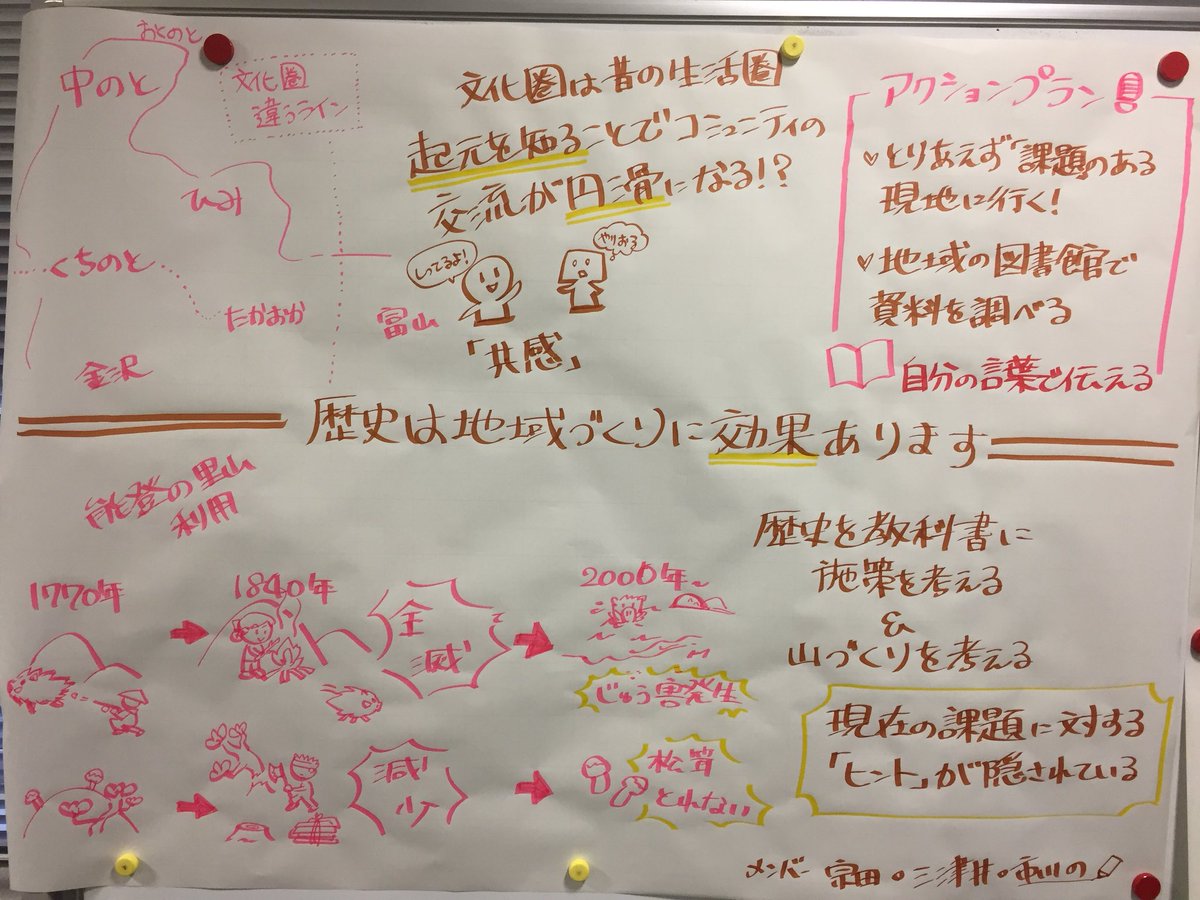 おくのと
中のと
文化圏
違うライン
ひみ
くちのと
たかおか
富山
金沢
文化圏は昔の生活圏
起元を知ることでコミュニティの
交流が円滑になる!?
しってるよ!
やりおる
「共感」
アクションプラン
とりあえず「課題」のある
現地に行く!
地域の図書館で
資料を調べる
自分の言葉で伝える
歴史は地域づくりに効果あります
能登の里山
利用
1770年
1840年
全滅
2000年~
じゅう害発生
減少
松茸
とれない
歴史を教科書に
施策を考える
&
山づくりを考える
現在の課題に対する
「ヒント」が隠されている
メンバー 宗田・三津井・市川の